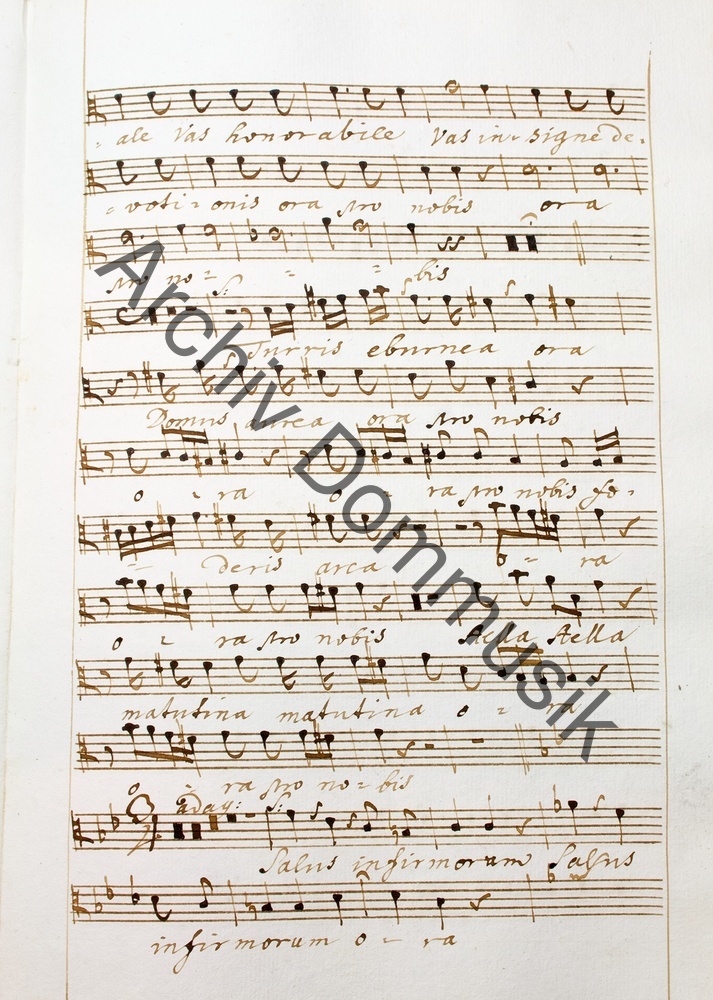 - ale Vas honorabile Vas in- signe de-
- voti - onis ora pro nobis ora
pro no - - - bis
S:
Turris eburnea ora
Domus aurea ora pro nobis
o - ra o - ra pro nobis fe-
- deris arca o - ra
o - ra pro nobis stella stella
matutina matutina o - ra
o - ra pro no - bis
aday: S:
Salus infirmorum Salus
infirmorum o - ra
Archiv Dommusik